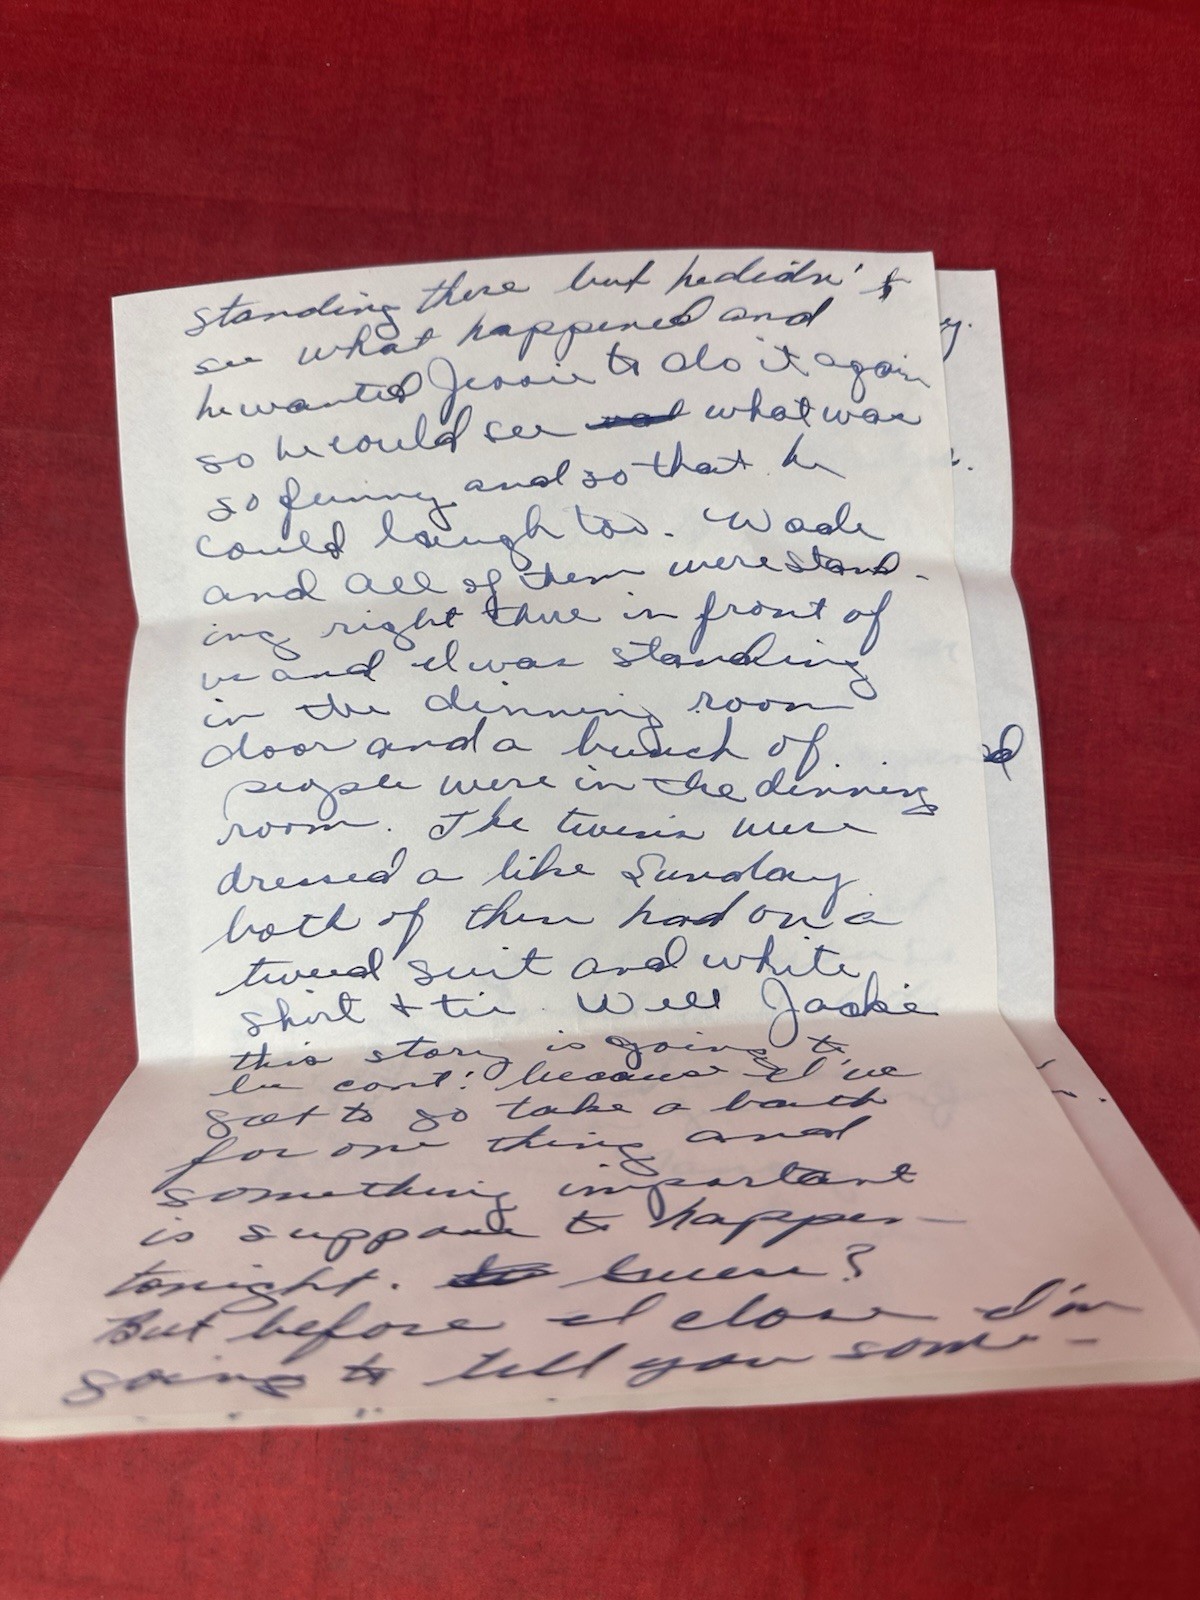 standing there but he didn't
see what happened and
he wanted Jessie to do it again
so he could see what was
so funny and so that he
could laugh too. Wade
and all of them were stand-
ing right there in front of
us and I was standing
in the dinning room
door and a bunch of
people were in the dinning
room. The twins were
dressed a like Sunday
both of them had on a
tweed suit and white
shirt & tie. Well Jackie
this story is going to
be cont! because I've
got to go take a bath
for one thing and
something important
is suppose to happen
tonight. Guess?
But before I close I'm
going to tell you some-
y.
d